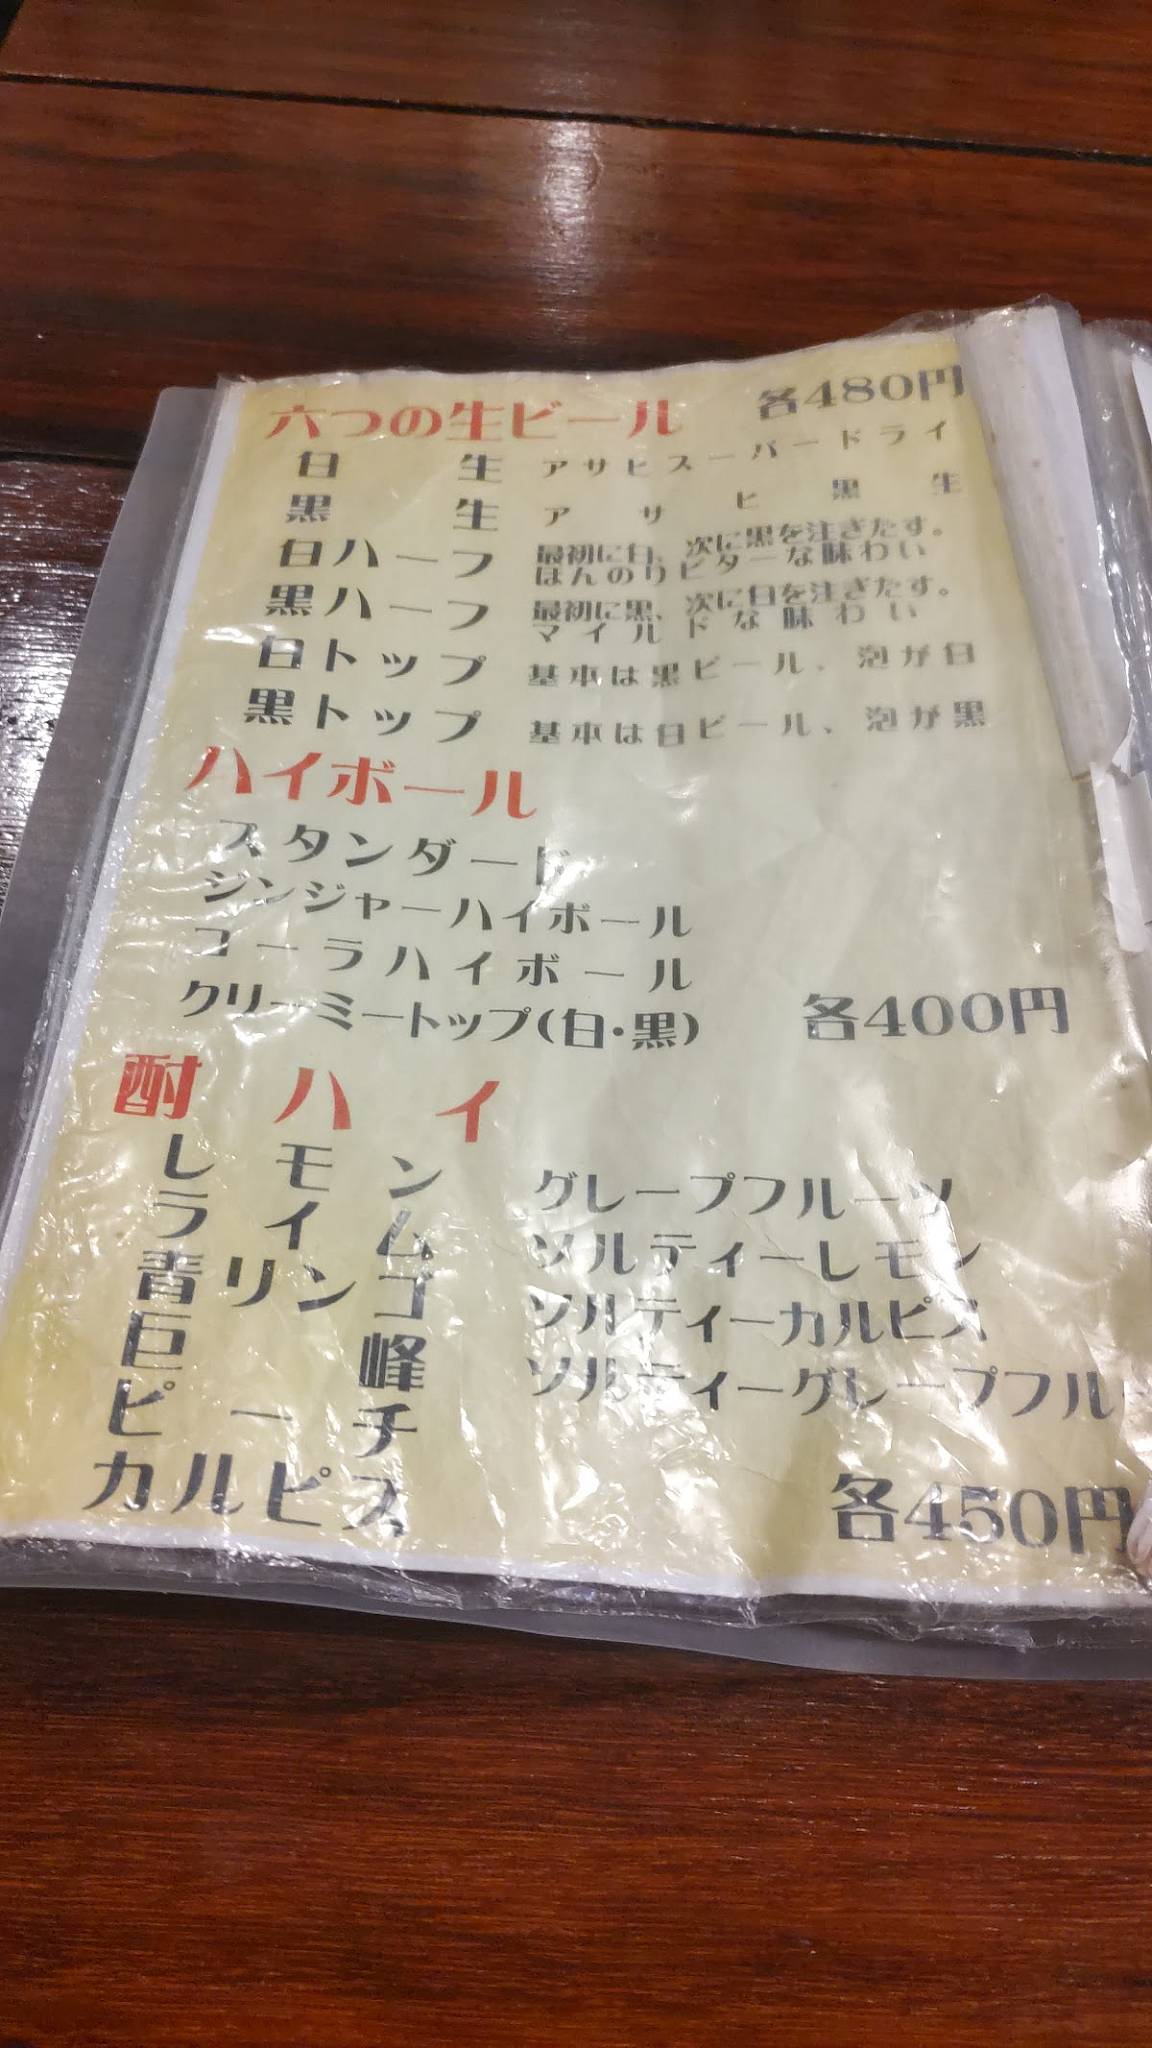 六つの生ビール 各480円
白生 アサヒスーパードライ
黒生 アサヒ黒生
白ハーフ 最初に白、次に黒を注ぎたす。
ほんのりビターな味わい
黒ハーフ 最初に黒、次に白を注ぎたす。
マイルドな味わい
白トップ 基本は黒ビール、泡が白
黒トップ 基本は白ビール、泡が黒
ハイボール
スタンダード
ジンジャーハイボール
コーラハイボール
クリーミートップ(白・黒) 各400円
酎ハイ
レモン グレープフルーツ
ライム ソルティーレモン
青リンゴ ソルティーカルピス
巨峰 ソルティーグレープフルー
ピーチ
カルピス 各450円